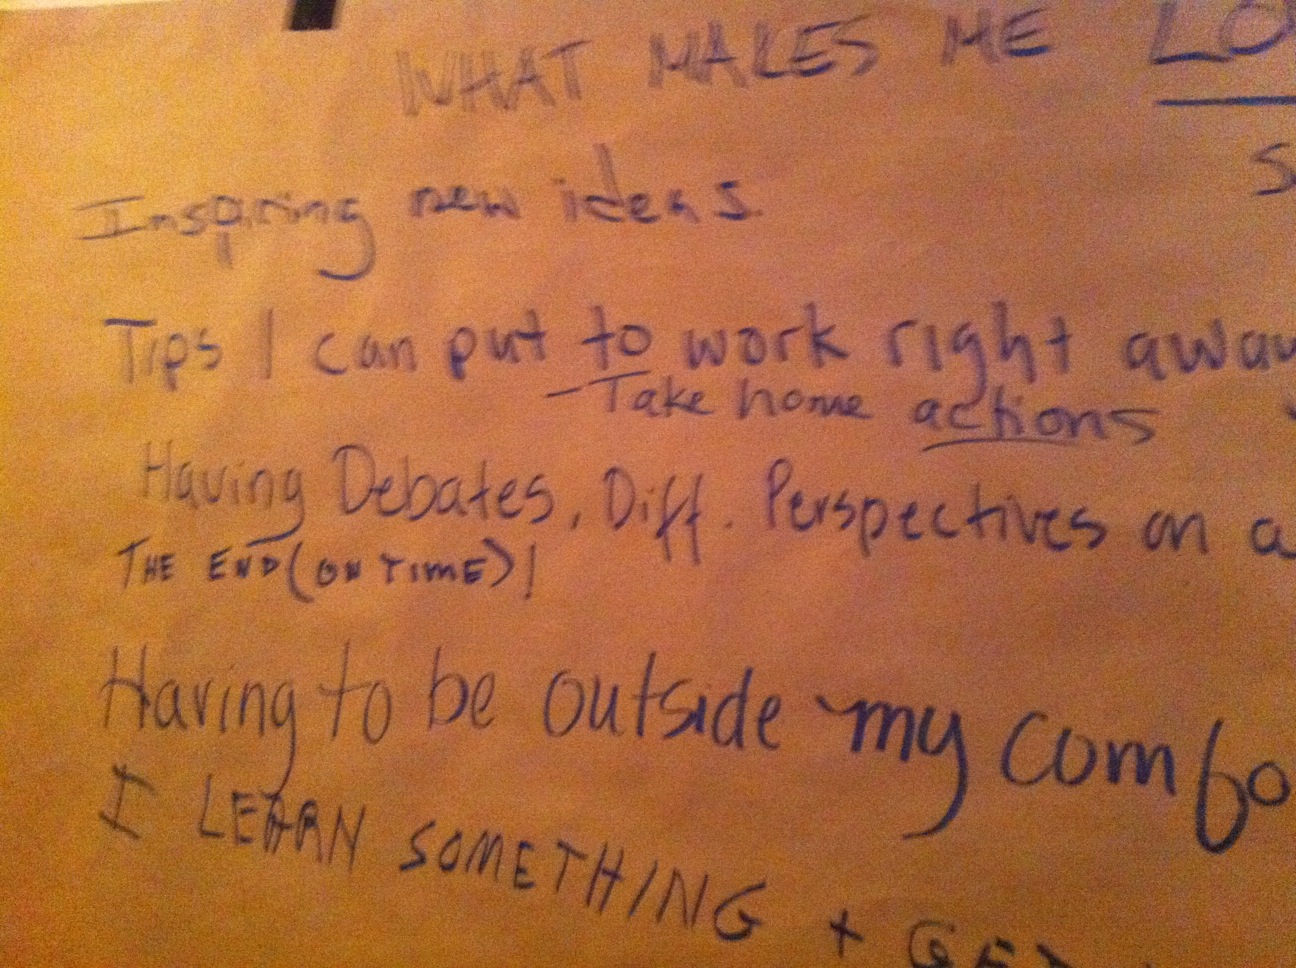 WHAT MAKES ME LO
S
Inspiring new ideas.
Tips I can put to work right away
- Take home actions
Having Debates, Diff. Perspectives on a
THE END (ON TIME)!
Having to be outside my comfo
I LEARN SOMETHING + GET